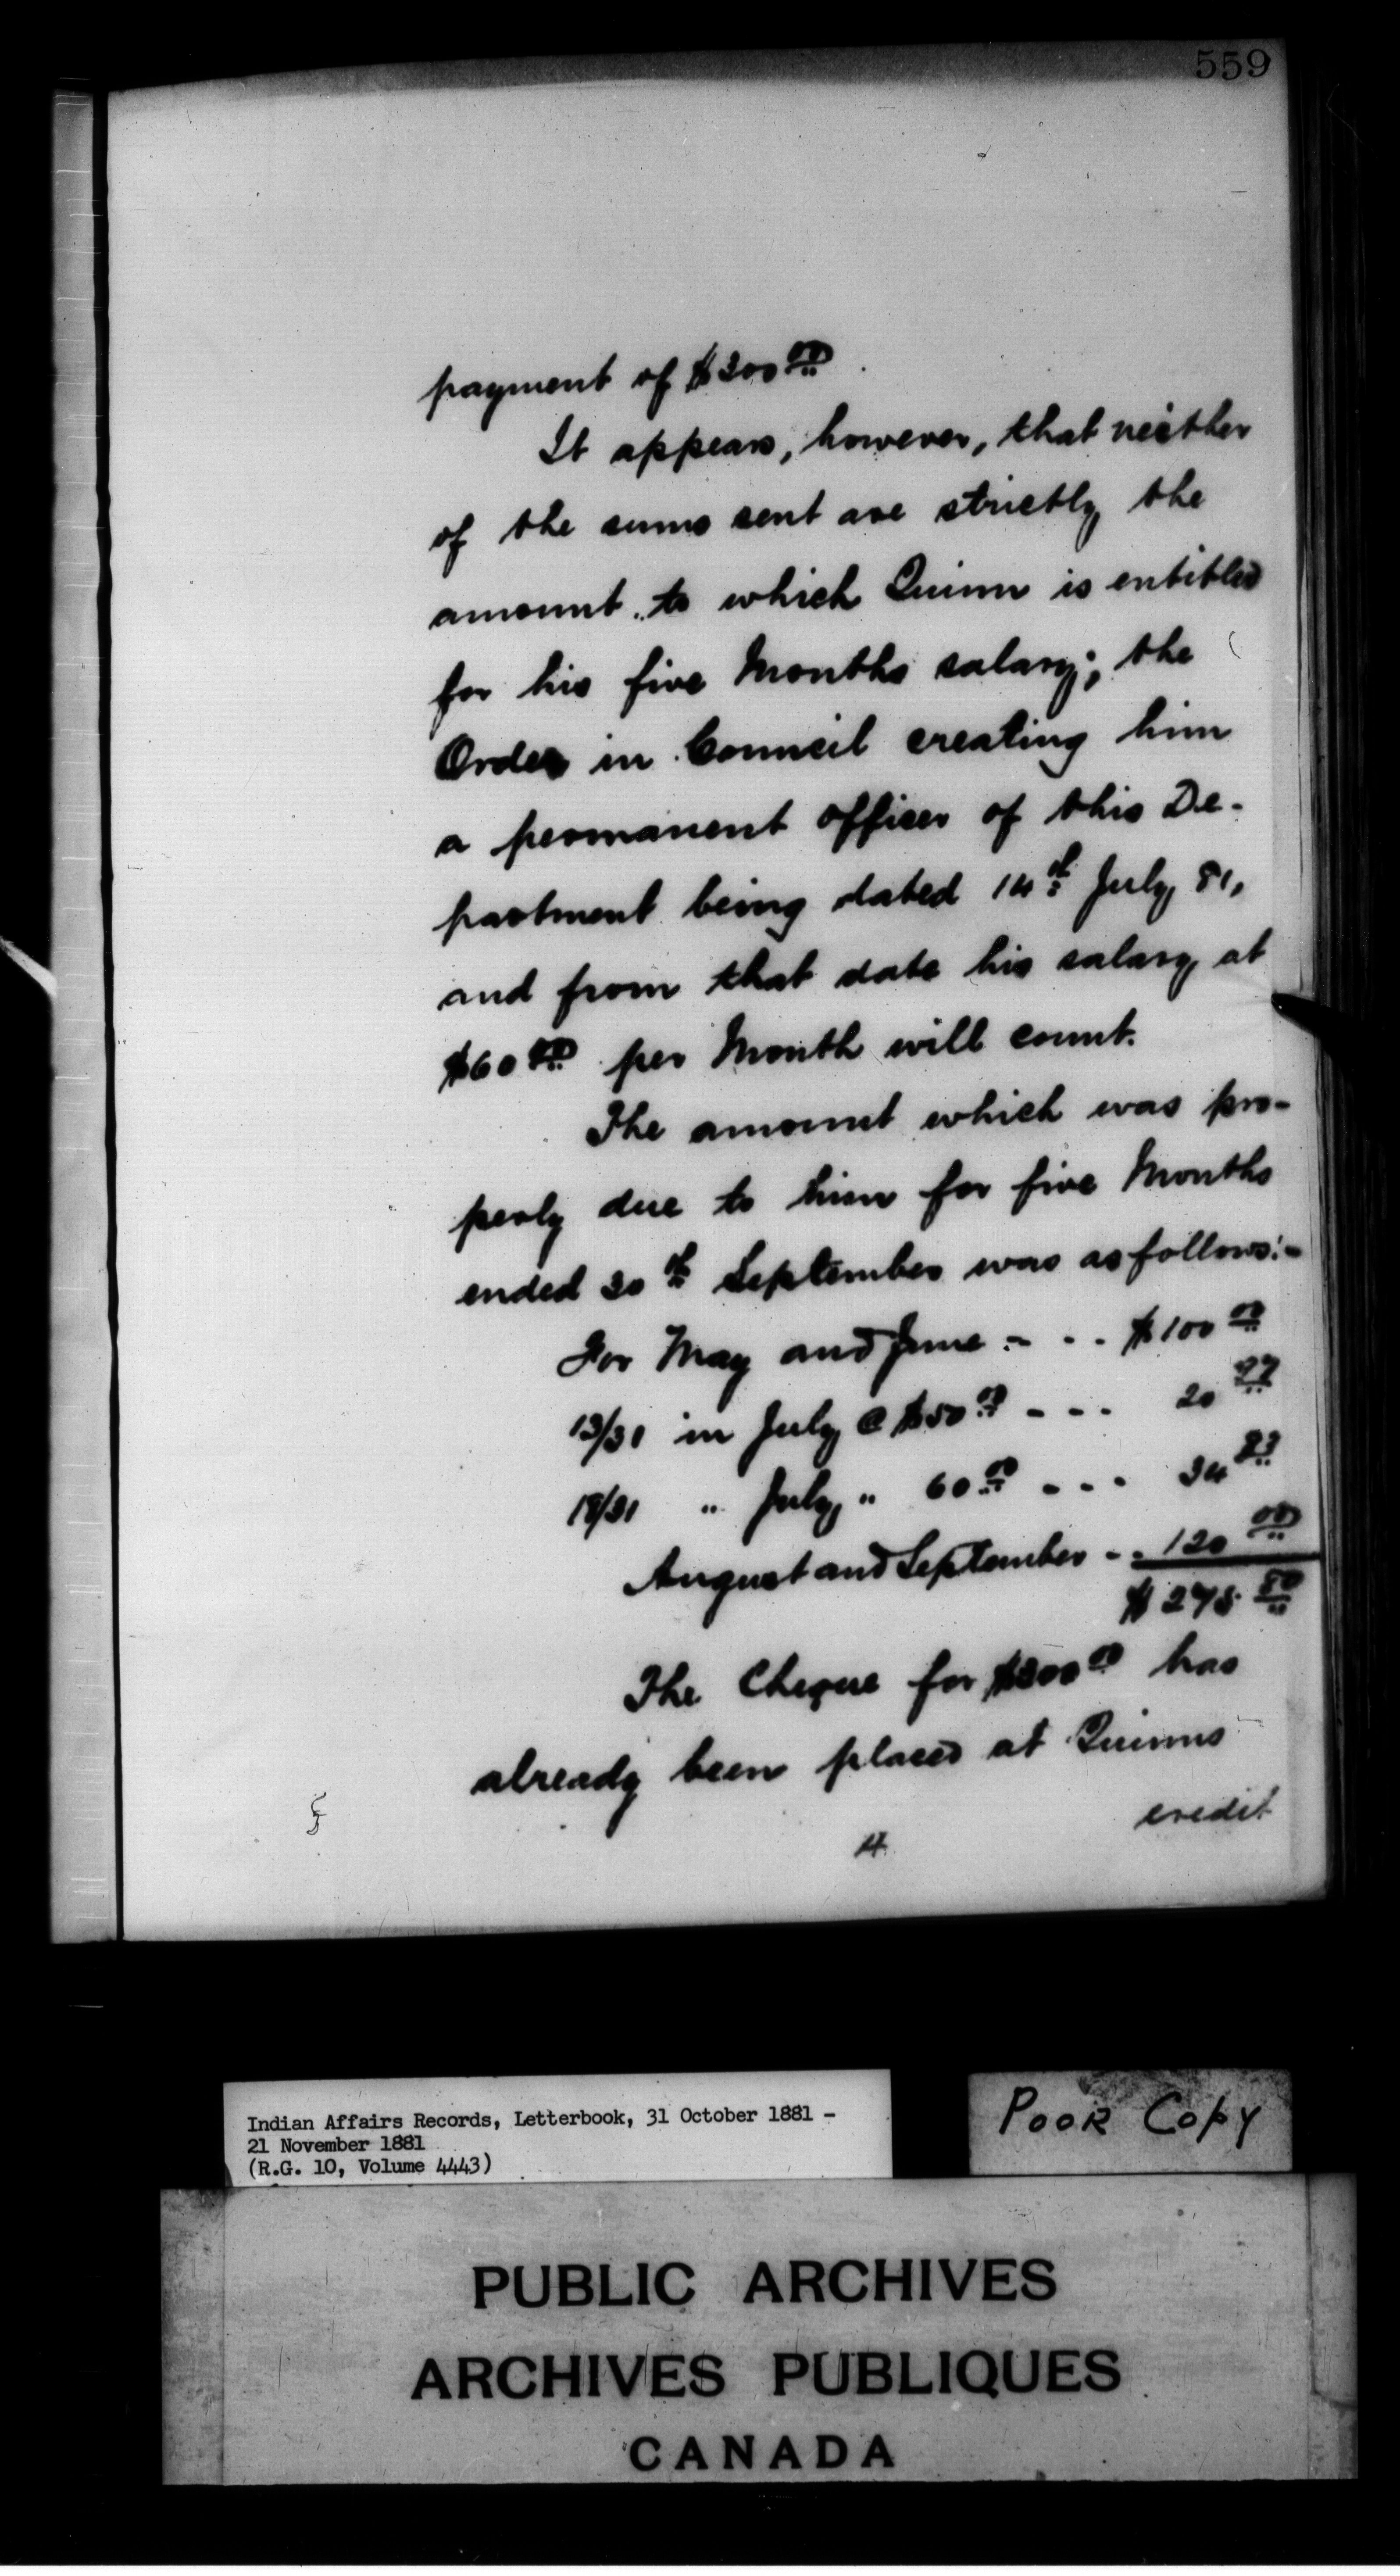 559
payment of $300.00
It appears, however, that neither
of the sums sent are strictly the
amount to which Quinn is entitled
for his five Months salary; the
Order in Council creating him
a permanent officer of this De-
partment being dated 14th July, 81,
and from that date his salary at
$60.00 per Month will count.
The amount which was pro-
perly due to him for five Months
ended 30th September was as follows:-
For May and June - - - $100.00
13/31 in July @ $50.00 - - - 20.97
18/31 " July, " 60.00 - - - 34.83
August and September - - 120.00
$275.80
The Cheque for $300.00 has
already been placed at Quinns
credit
4
Indian Affairs Records, Letterbook, 31 October 1881 -
21 November 1881
(R.G. 10, Volume 4443)
Poor Copy
PUBLIC ARCHIVES
ARCHIVES PUBLIQUES
CANADA